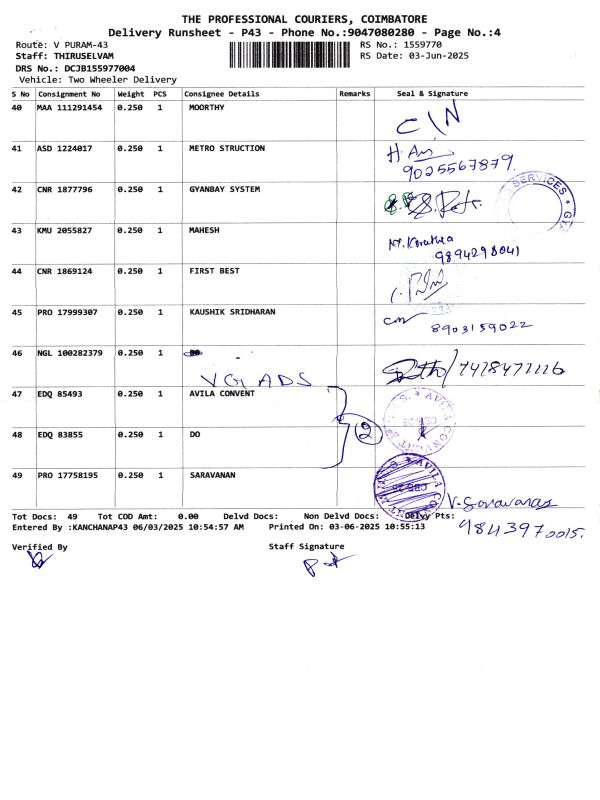 THE PROFESSIONAL COURIERS, COIMBATORE
Delivery Runsheet - P43 - Phone No.:9047080280 - Page No.:4
Route: V PURAM-43 RS No.: 1559770
Staff: THIRUSELVAM RS Date: 03-Jun-2025
DRS No.: DCJB155977004
Vehicle: Two Wheeler Delivery
S No Consignment No Weight PCS Consignee Details Remarks Seal & Signature
40 MAA 111291454 0.250 1 MOORTHY
41 ASD 1224017 0.250 1 METRO STRUCTION
9025567879.
42 CNR 1877796 0.250 1 GYANBAY SYSTEM
SERVICES
43 KMU 2055827 0.250 1 MAHESH
9894298041
44 CNR 1869124 0.250 1 FIRST BEST
45 PRO 17999307 0.250 1 KAUSHIK SRIDHARAN
8903159022
46 NGL 100282379 0.250 1
VG ADS
47 EDQ 85493 0.250 1 AVILA CONVENT
AVILA CONVENT
2
48 EDQ 83855 0.250 1 DO
49 PRO 17758195 0.250 1 SARAVANAN
V. Saravanan
Tot Docs: 49 Tot COD Amt: 0.00 Delvd Docs: Non Delvd Docs: Delvy Pts:
9843970015.
Entered By :KANCHANAP43 06/03/2025 10:54:57 AM Printed On: 03-06-2025 10:55:13
Verified By Staff Signature